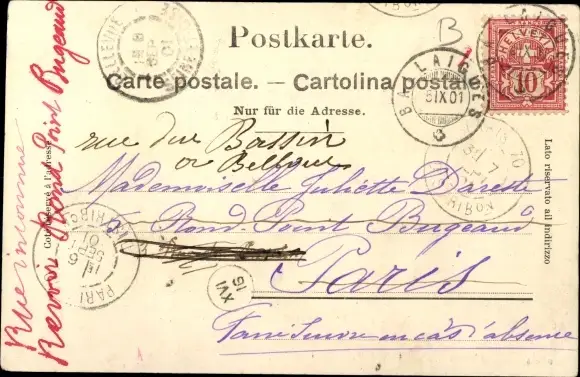 Postkarte.
Carte postale. — Cartolina postale.
Nur für die Adresse.
Côté réservé à l'adresse.
Lato riservato all'indirizzo
B
BALLAIGUES
5 IX 01
HELVETIA
10
rue du Bassin
ou Bellevue
Mademoiselle Juliette Dareste
Rond-Point Bugeaud
Paris
Faire suivre en cas d'absence
Rue inconnue
Revoir Rond Point Bugeaud
XVI
16
PARIS